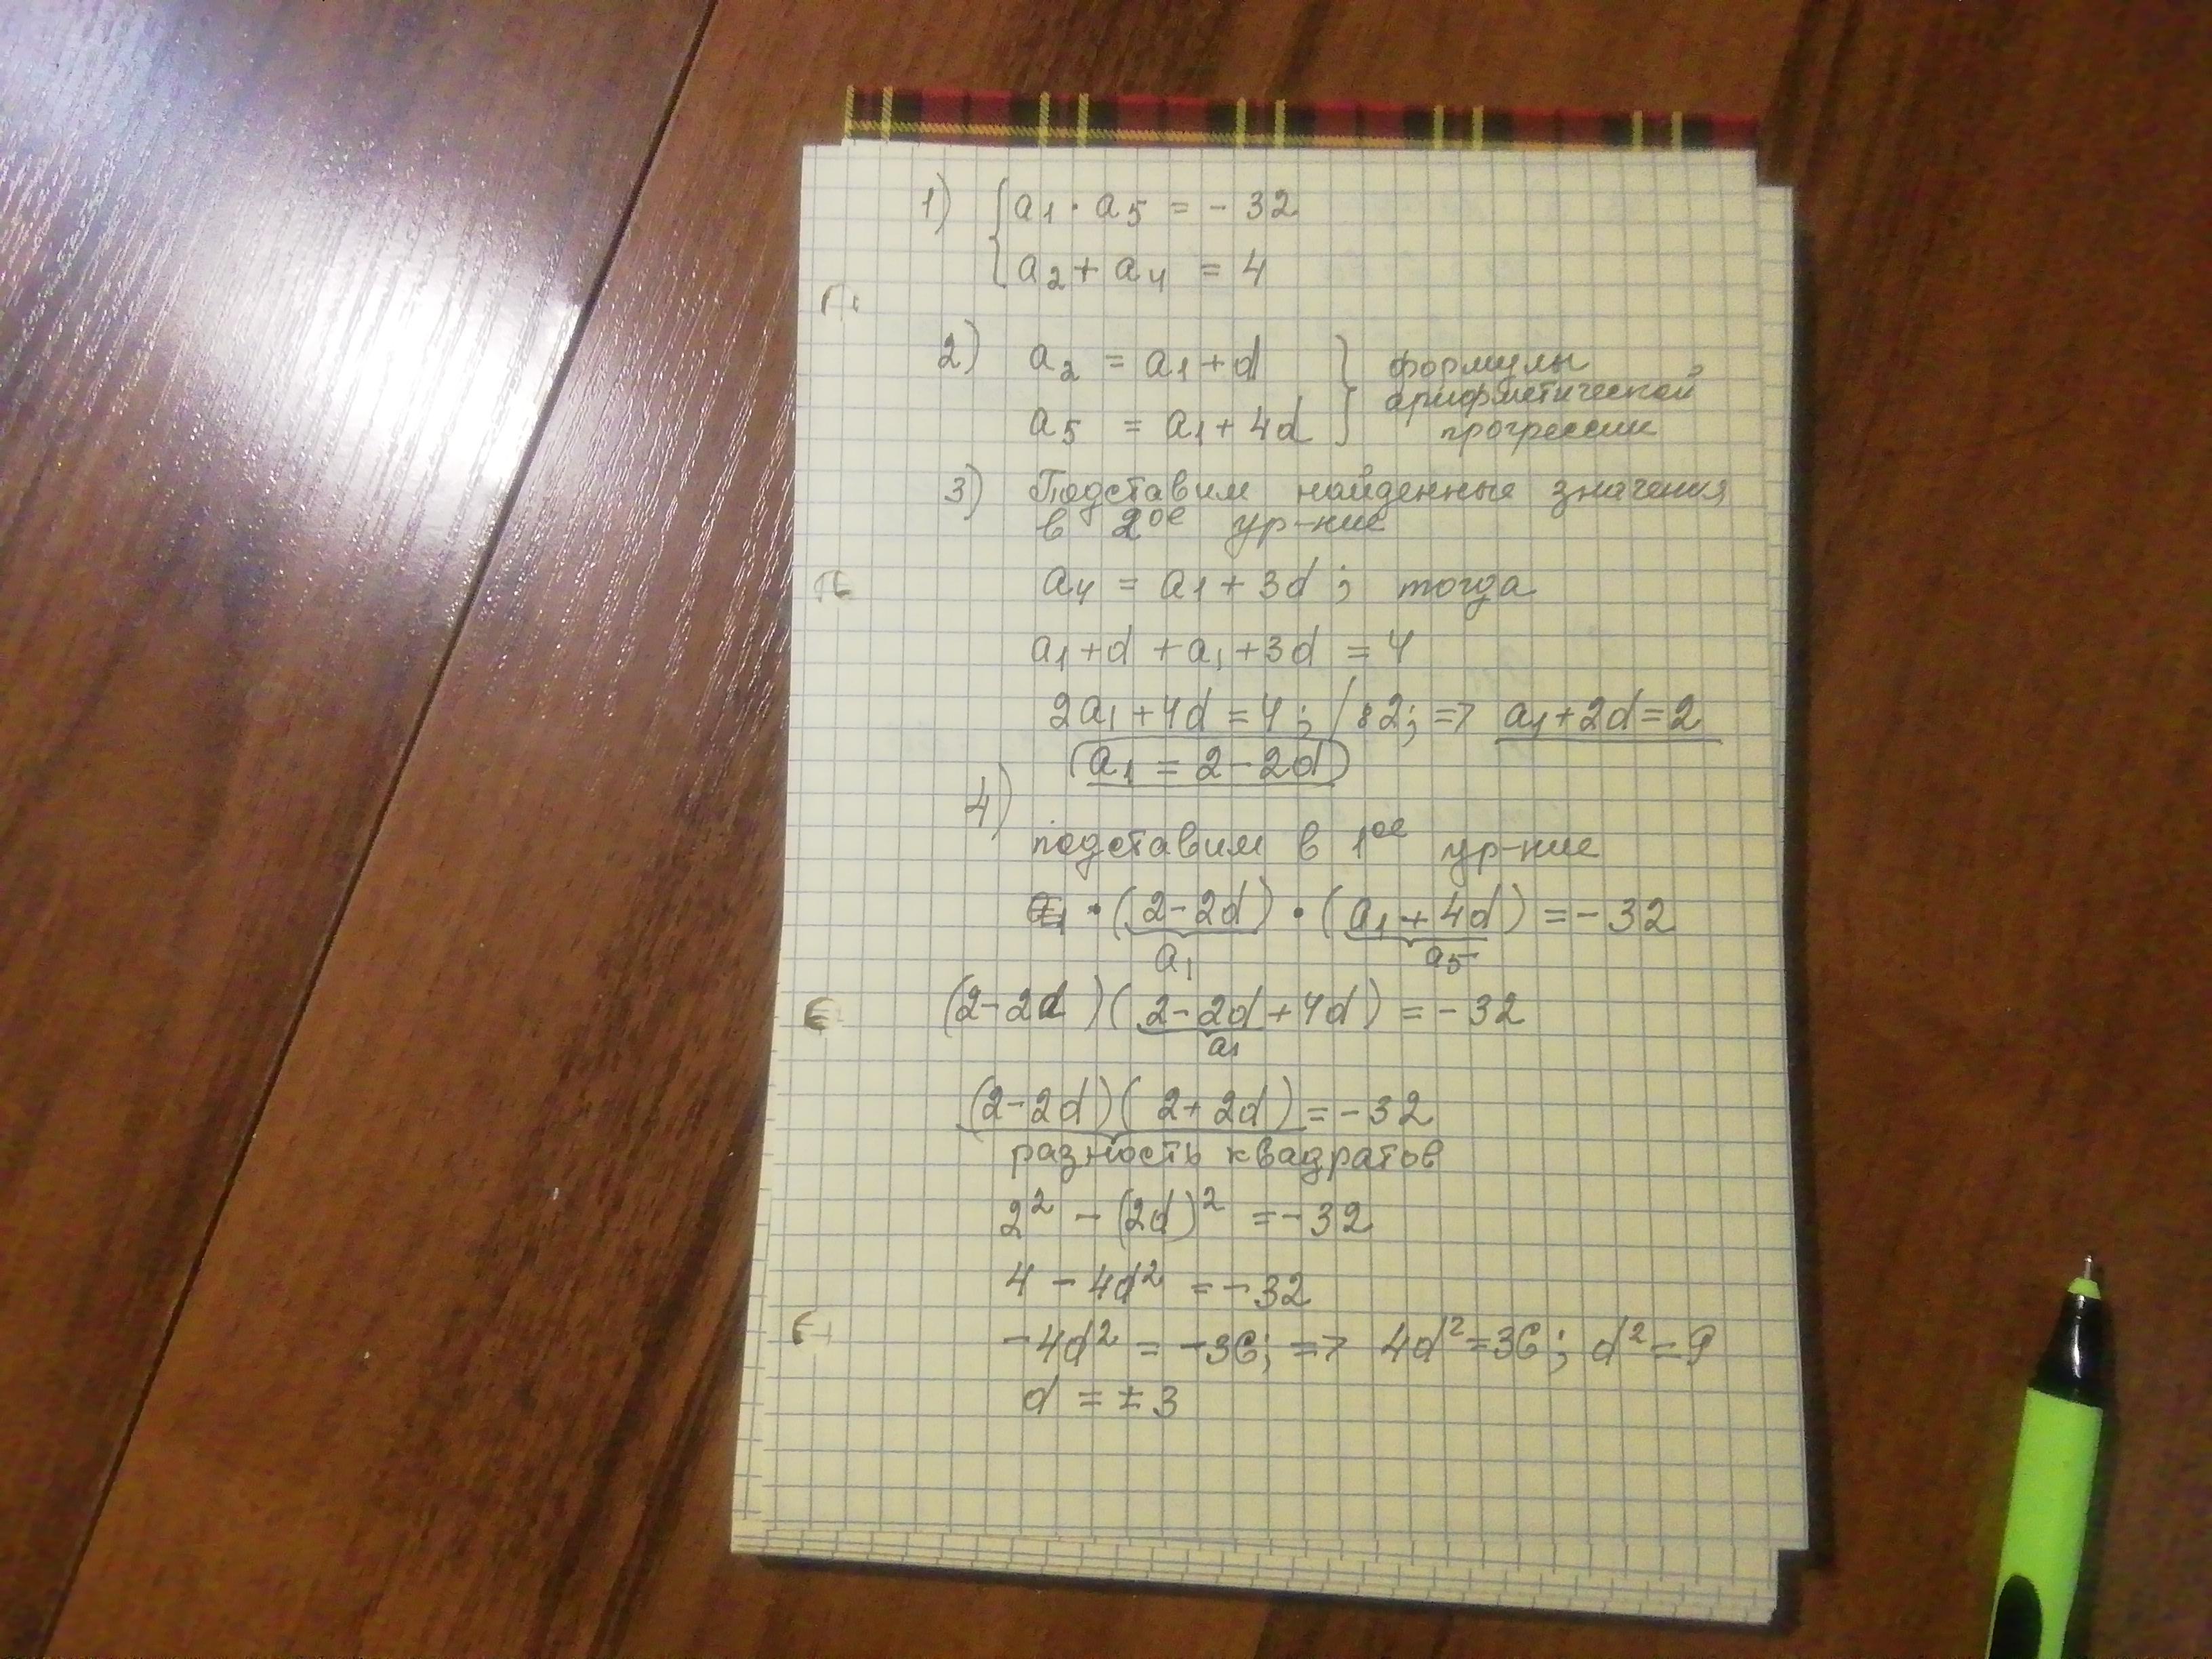 1) { a1 · a5 = - 32
a2 + a4 = 4
2) a2 = a1 + d } формулы
арифметической
a5 = a1 + 4d прогрессии
3) Подставим найденные значения
в 2ое ур-ние
a4 = a1 + 3d ; тогда
a1 + d + a1 + 3d = 4
2a1 + 4d = 4 ; / : 2 ; => a1 + 2d = 2
a1 = 2 - 2d
4)
подставим в 1ое ур-ние
· (2 - 2d) · (a1 + 4d) = - 32
a1 a5
(2 - 2d) (2 - 2d + 4d) = - 32
a1
(2 - 2d) (2 + 2d) = - 32
разность квадратов
2² - (2d)² = - 32
4 - 4d² = - 32
- 4d² = - 36; => 4d² = 36 ; d² = 9
d = ± 3